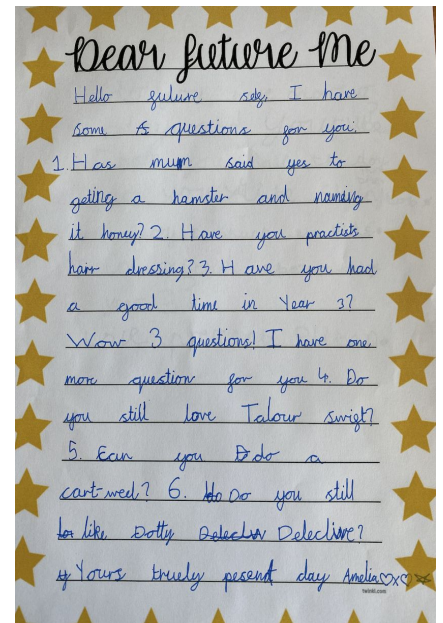 Dear Future Me
Hello future self, I have
some questions for you.
1. Has mum said yes to
geting a hamster and naming
it honey? 2. Have you practists
hair dressing? 3. Have you had
a good time in Year 3?
Wow 3 questions! I have one
more question for you 4. Do
you still love Talour swigt?
5. Can you do a
cart-weel? 6. Do you still
like Dotty Detective?
Yours truely pesent day Amelia♡x♡
twinkl.com